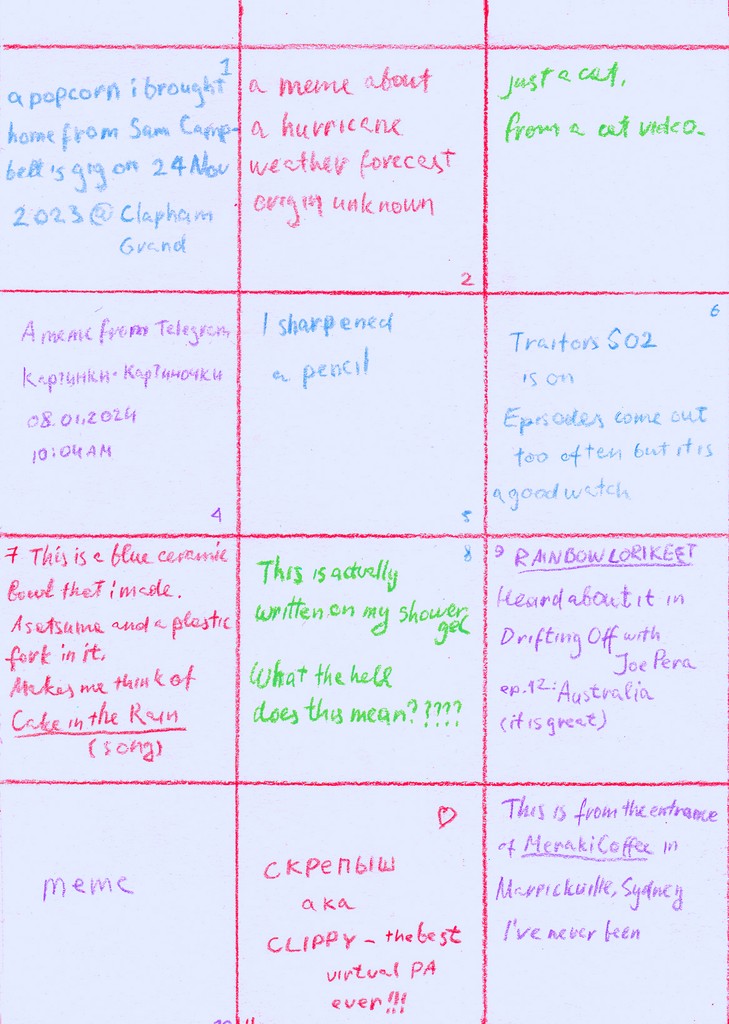 1
a popcorn i brought
home from Sam Camp-
bell's gig on 24 Nov
2023 @ Clapham
Grand
a meme about
a hurricane
weather forecast
origin unknown
2
just a cat,
from a cat video.
A meme from Telegram
Картинки-Картиночки
08.01.2024
10:04AM
4
I sharpened
a pencil
5
6
Traitors S02
is on
Episodes come out
too often but it is
a good watch
7 This is a blue ceramic
bowl that i made.
A satsuma and a plastic
fork in it.
Makes me think of
Cake in the Rain
(song)
8
This is actually
written on my shower
gel
What the hell
does this mean?????
9 RAINBOW LORIKEET
Heard about it in
Drifting Off with
Joe Pera
ep. 12: Australia
(it is great)
meme
СКРЕПЫШ
aka
CLIPPY – the best
virtual PA
ever!!!
This is from the entrance
of Meraki Coffee in
Marrickville, Sydney
I've never been